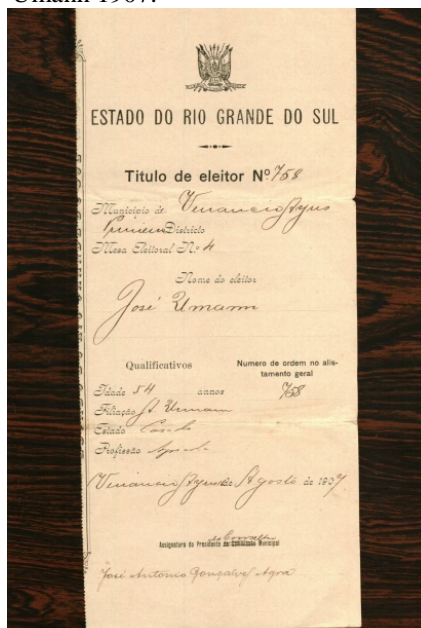 Umann 1907.
ESTADO DO RIO GRANDE DO SUL
Titulo de eleitor Nº 758
Municipio de Venancio Ayres
Primeiro Districto
Mesa Eleitoral N.º 4
Nome do eleitor
José Umann
Qualificativos
Numero de ordem no alis-
tamento geral
Idade 54 annos
758
Filiação A. Umann
Estado Casado
Profissão
Venancio Ayres de Agosto de 1907
Assignatura do Presidente da Commissão Municipal
José Antonio Gonçalves Agra